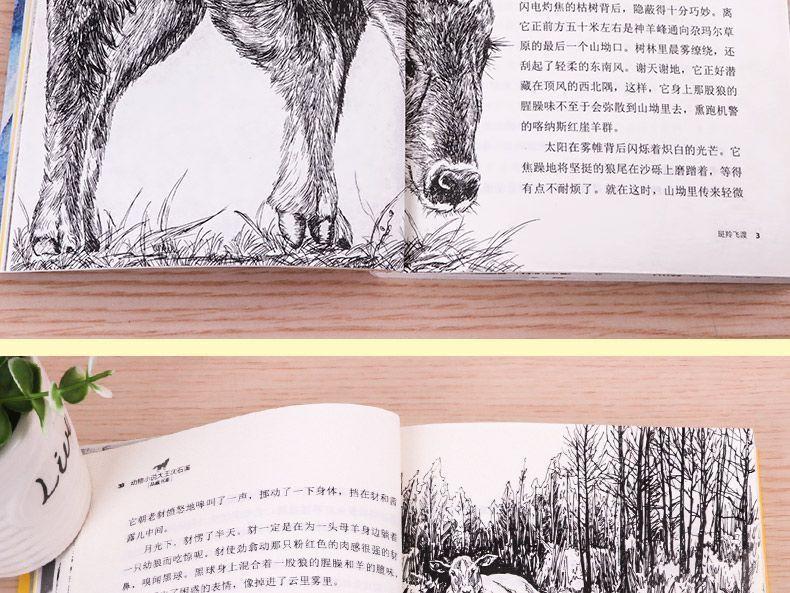 闪电灼焦的枯树背后，隐蔽得十分巧妙。离
它正前方五十米左右是神羊峰通向尕玛尔草
原的最后一个山坳口。树林里晨雾缭绕，还
刮起了轻柔的东南风。谢天谢地，它正好潜
藏在顶风的西北隅，这样，它身上那股狼的
腥臊味不至于会弥散到山坳里去，熏跑机警
的喀纳斯红崖羊群。
太阳在雾帷背后闪烁着炽白的光芒。它
焦躁地将坚挺的狼尾在沙砾上磨蹭着，等得
有点不耐烦了。就在这时，山坳里传来轻微
斑羚飞渡 3
Liv
30 动物小说大王沈石溪
品藏书系
它朝老豺愤怒地嗥叫了一声，挪动了一下身体，挡在豺和茜
露儿中间。
月光下，豺愣了半天。豺一定是在为一头母羊身边躺着
一只幼狼而吃惊呢。豺使劲翕动那只粉红色的肉感很强的豺
鼻，嗅闻黑球。黑球身上混合着一股狼的腥臊和羊的膻味，
困惑的表情，像掉进了云里雾里。